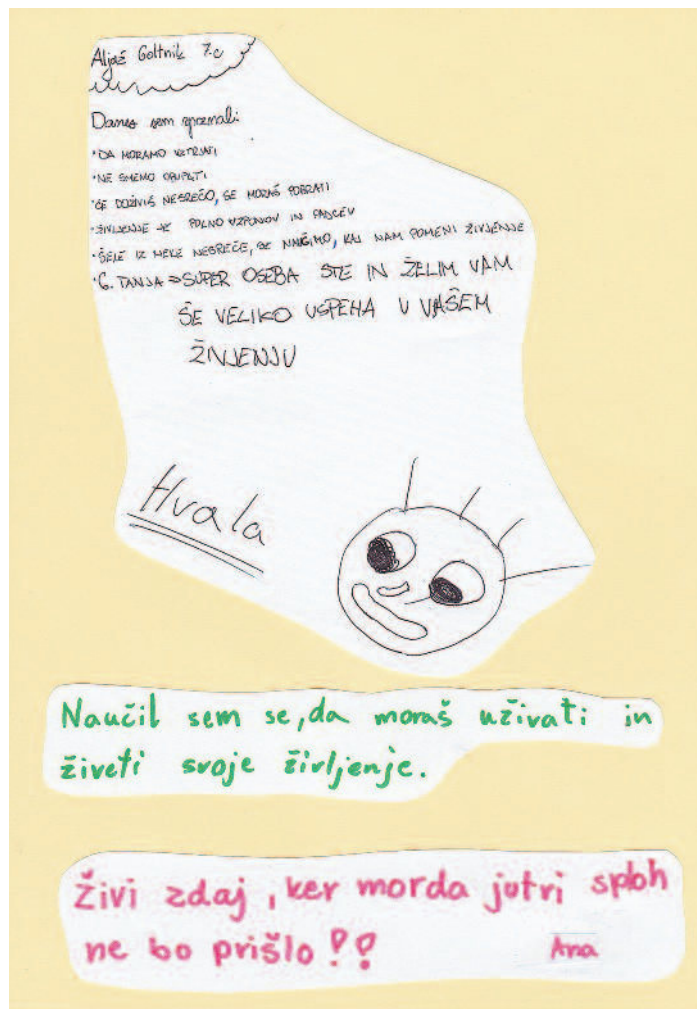 Aljaž Goltnik 7.c
Danes sem spoznal:
• DA MORAMO VZTRJATI
• NE SMEMO OBUPATI
• ČE DOŽIVIŠ NESREČO, SE MORAŠ POBRATI
• ŽIVLJENJE JE POLNO VZPONOV IN PADCEV
• ŠELE IZ NEKE NESREČE, SE NAUČIMO, KAJ NAM POMENI ŽIVLJENJE
• G. TANJA ⇒ SUPER OSEBA STE IN ŽELIM VAM
ŠE VELIKO USPEHA V VAŠEM
ŽIVJENJU
Hvala
Naučil sem se, da moraš uživati in
živeti svoje življenje.
Živi zdaj, ker morda jutri sploh
ne bo prišlo!?
Ana